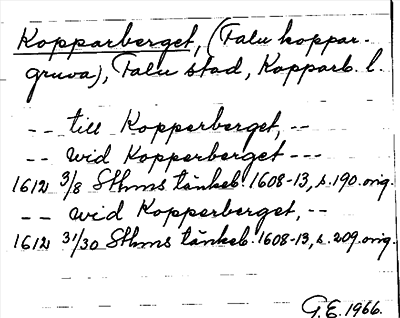 Kopparberget, (Falu koppar-
gruva), Falu stad, Kopparb. l.
-- till Kopperberget, --
-- wid Kopperberget ---
1612 3/8 Sthms tänkeb. 1608-13, s. 190. orig.
-- wid Kopperberget, --
1612 31/30 Sthms tänkeb. 1608-13, s. 209. orig.
G.E. 1966.